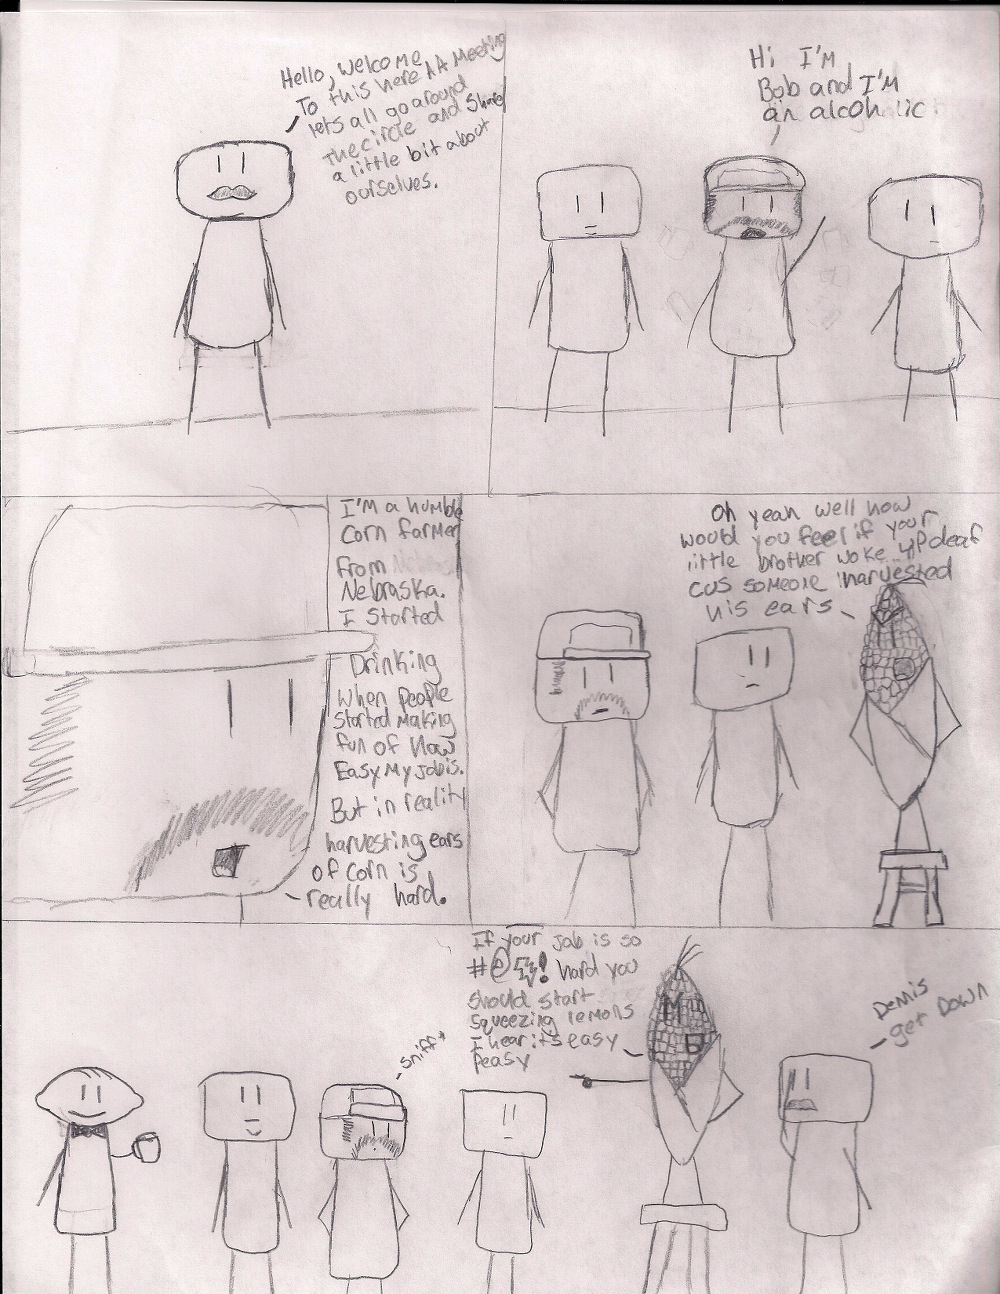 Hello, welcome
To this here AA Meeting
lets all go around
the circle and share
a little bit about
ourselves.
Hi I'm
Bob and I'm
an alcoholic
I'm a humble
corn farmer
from
Nebraska.
I started
Drinking
when people
started making
fun of how
Easy my job is.
But in reality
harvesting ears
of corn is
really hard.
Oh yeah well how
would you feel if your
little brother woke up deaf
cus someone harvested
his ears
If your job is so
#@ϟ! hard you
should start
squeezing lemons
I hear its easy
peasy
sniff*
Dennis
get Down